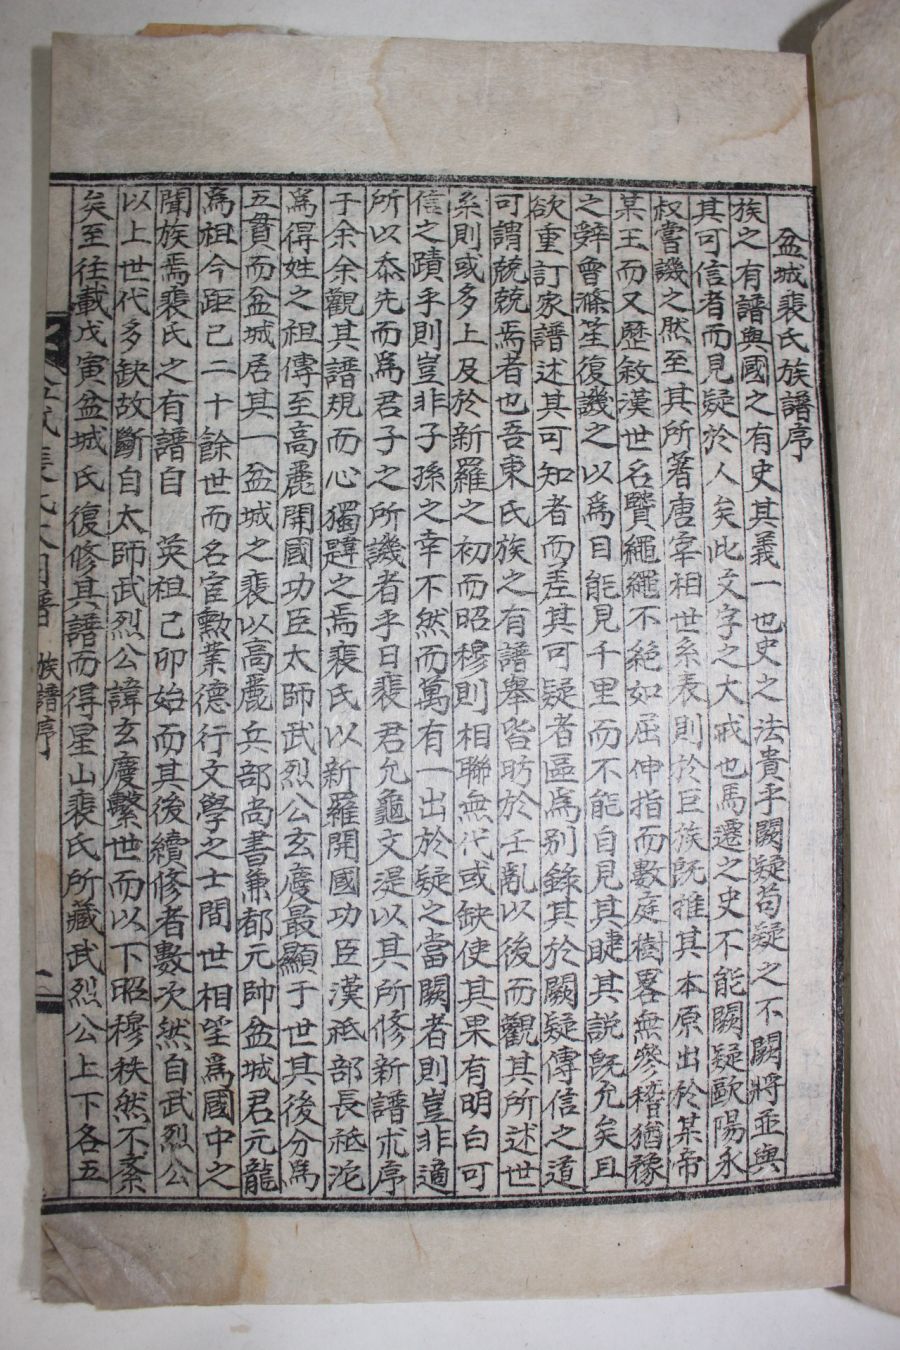 盆城裴氏族譜序
族之有譜與國之有史其義一也史之法貴乎闕疑苟疑之不闕將並與
其可信者而見疑於人矣此文字之大戒也馬遷之史不能闕疑歐陽永
叔嘗譏之然至其所著唐宰相世系表則於巨族旣推其本原出於某帝
某王而又歷敘漢世名賢繩繩不絶如屈伸指而數庭樹畧無參稽猶豫
之辭會滌笙復譏之以爲目能見千里而不能自見其睫其說旣允矣且
欲重訂家譜述其可知者而差其可疑者區爲別錄其於闕疑傳信之道
可謂兢兢焉者也吾東氏族之有譜舉皆昉於壬亂以後而觀其所述世
系則或多上及於新羅之初而昭穆則相聯無代或缺使其果有明白可
信之蹟乎則豈非子孫之幸不然而萬有一出於疑之當闕者則豈非適
所以忝先而爲君子之所譏者乎日裴君允龜文湜以其所修新譜求序
于余余觀其譜規而心獨韙之焉裴氏以新羅開國功臣漢祗部長祗沱
爲得姓之祖傳至高麗開國功臣太師武烈公玄慶最顯于世其後分爲
五貫而盆城居其一盆城之裴以高麗兵部尙書兼都元帥盆城君元龍
爲祖今距已二十餘世而名宦勲業德行文學之士間世相望爲國中之
聞族焉裴氏之有譜自 英祖己卯始而其後續修者數次然自武烈公
以上世代多缺故斷自太師武烈公諱玄慶繫世而以下昭穆秩然不紊
矣至往載戊寅盆城氏復修其譜而得星山裴氏所藏武烈公上下各五
族譜序
一